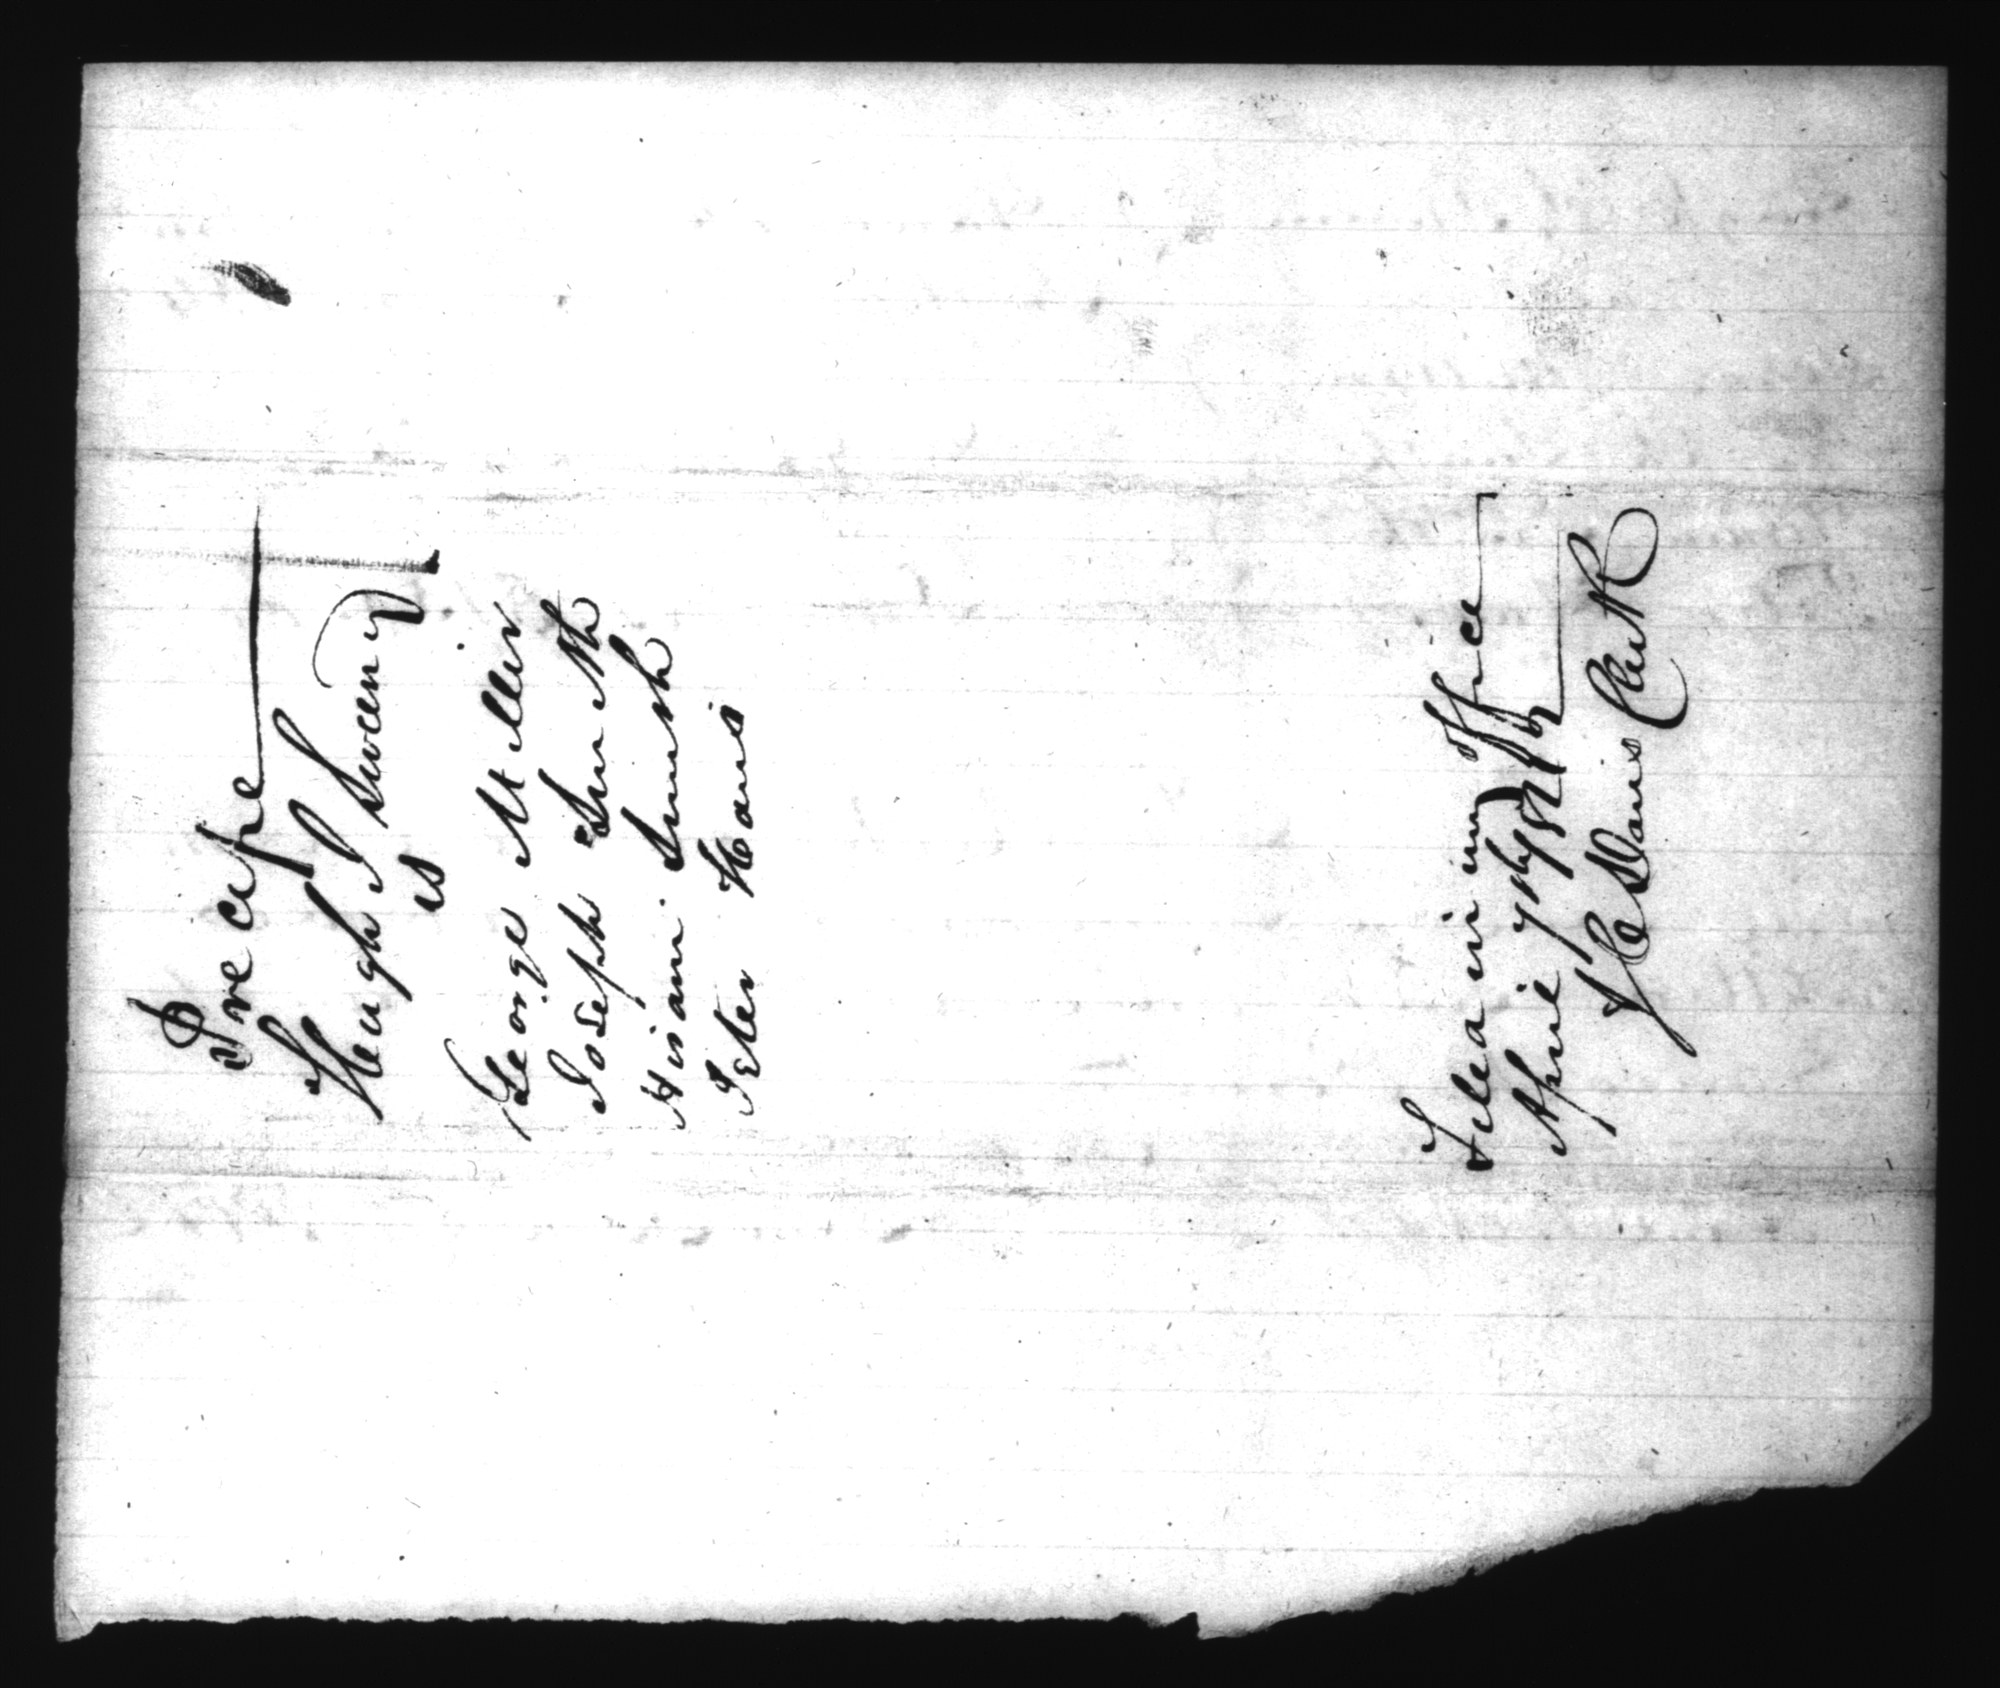 Precipe
Hugh J Sweeny
vs
George Miller
Joseph Smith
Hiram Smith
Peter Haws
Filed in my office
April 7th 1842
J C Davis Clerk